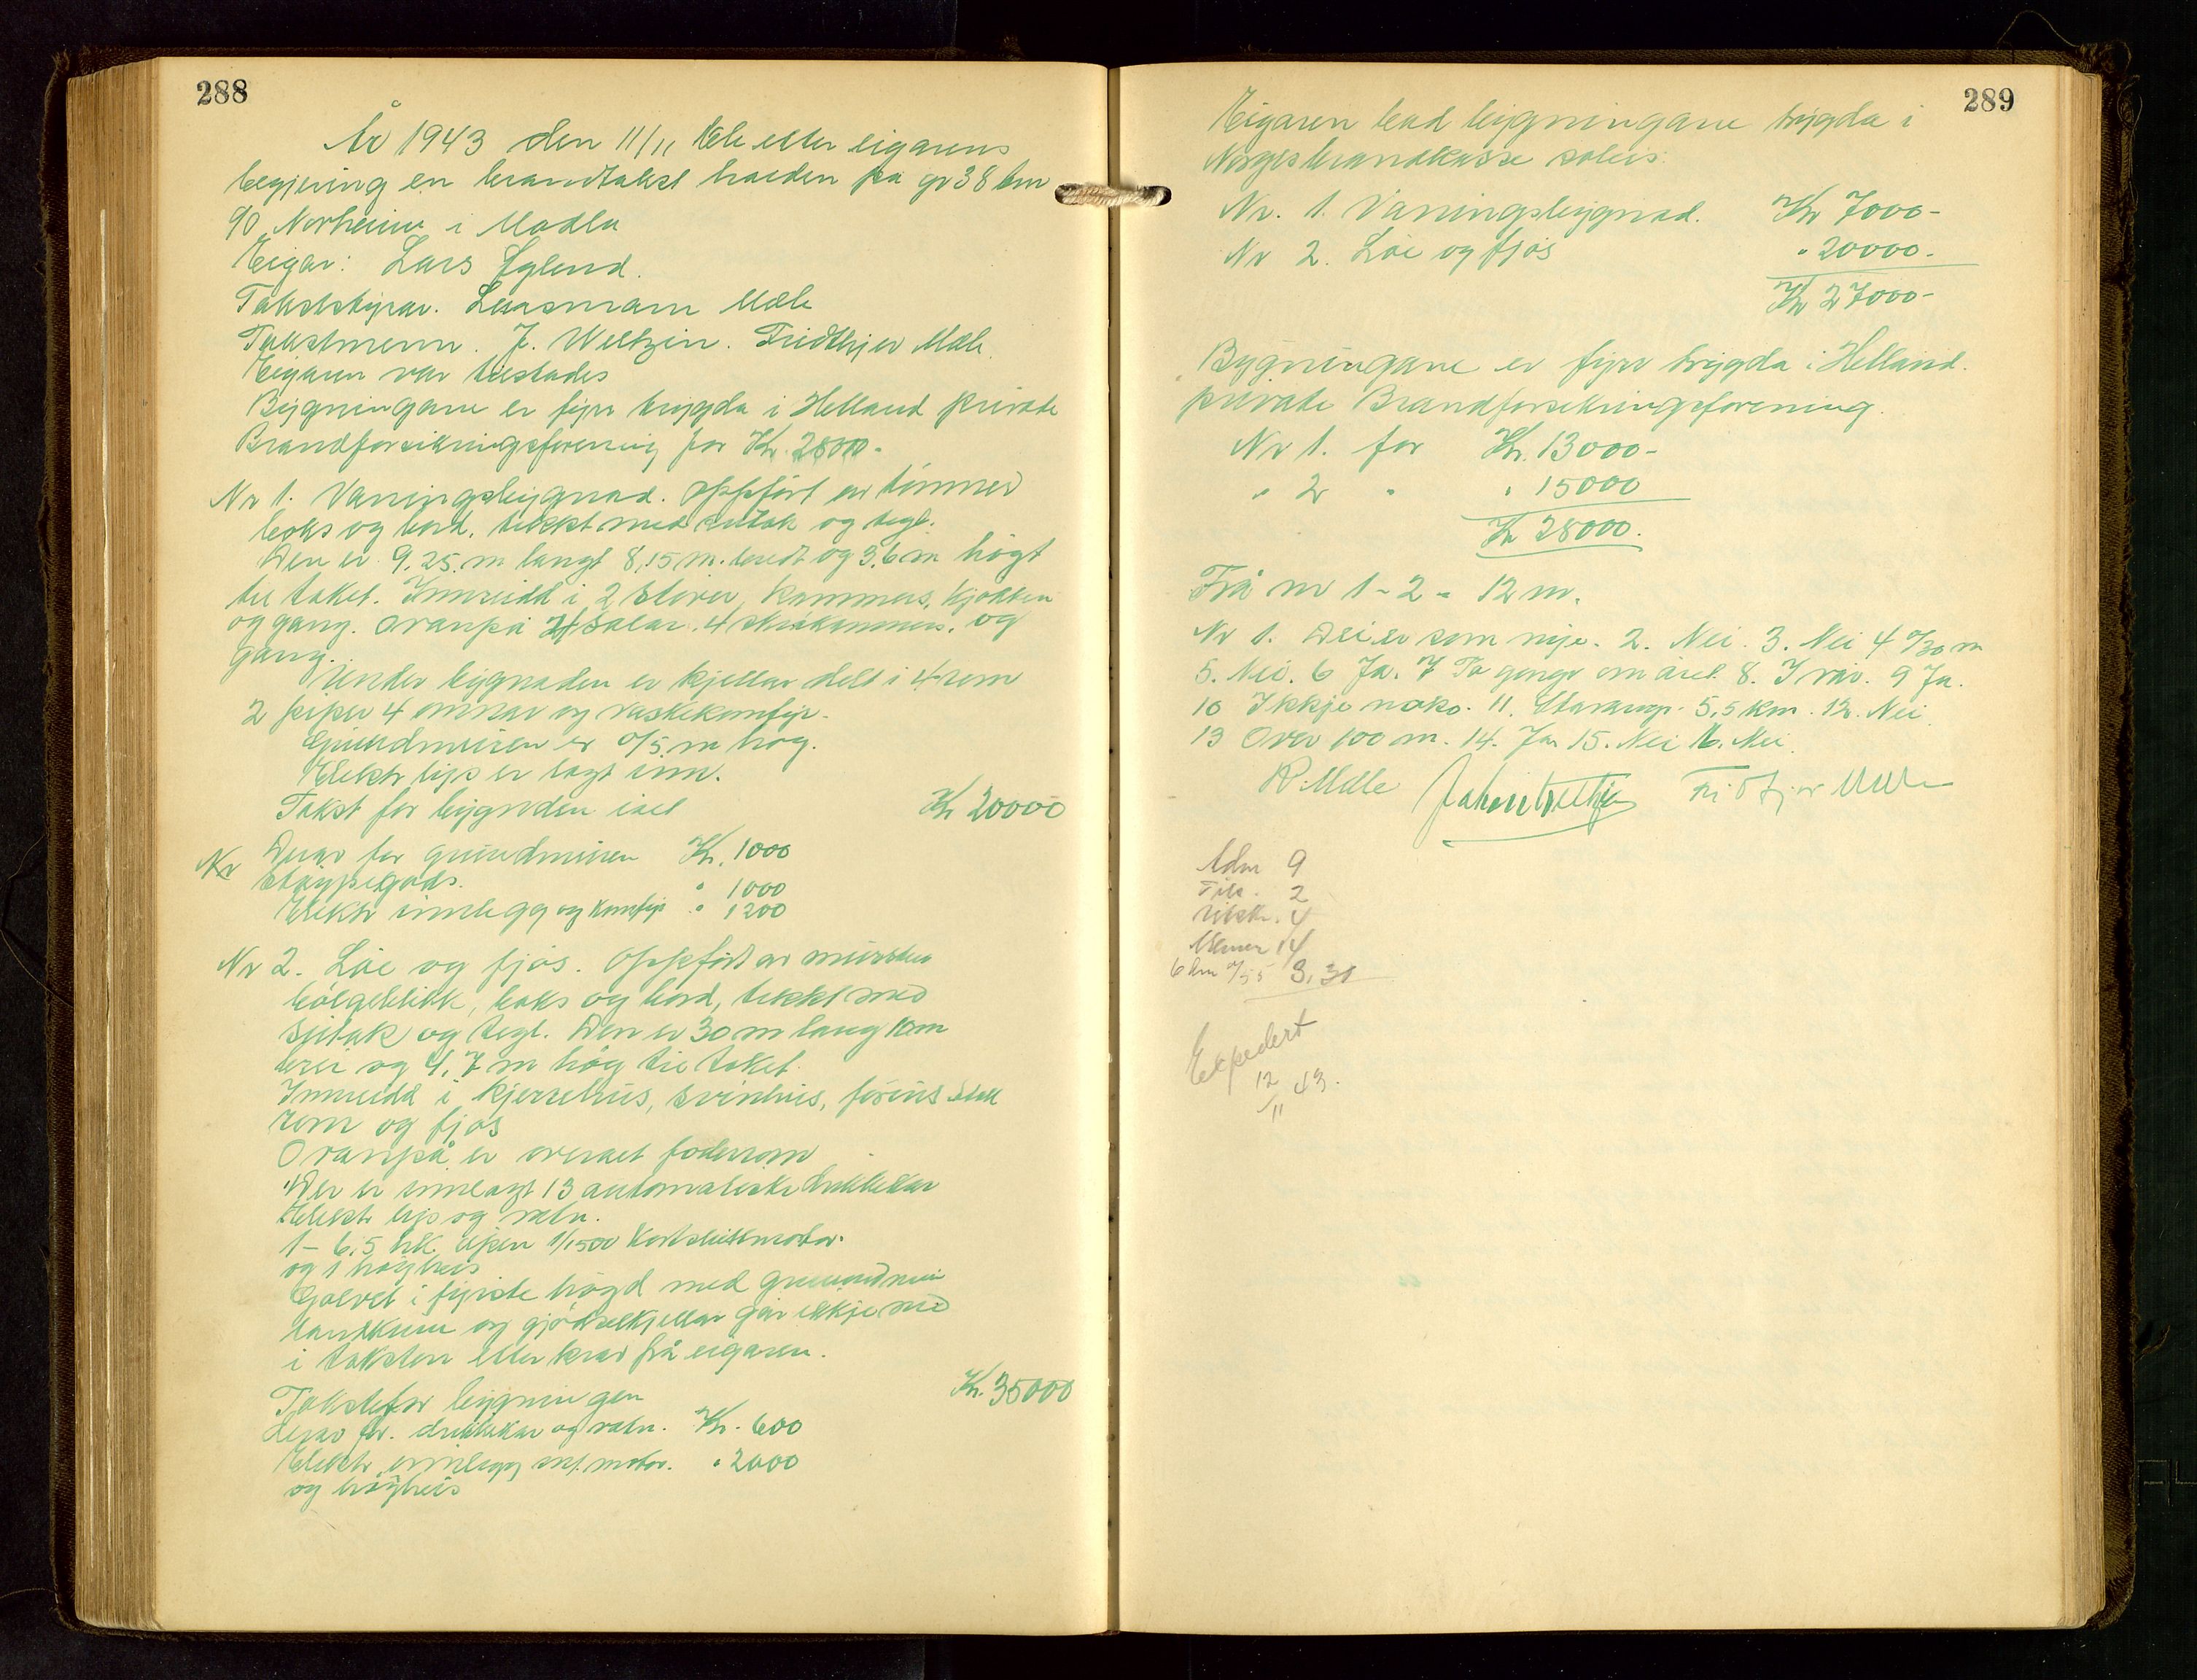 288
År 1943 den 11/11 ble etter eigarens
begjering en brandtakst halden på gr 38 bm
90 Norheim i Madla
Eigar: Lars Egland.
Takststyrar. Lensmann Mæle
Takstmenn. J. Weltzin. Fridthjov Mæle.
Eigaren var tilstades
Bygningane er fyrr trygda i Helland private
Brandforsikringsforening for Kr. 28000.-
Nr 1. Vaningsbygnad. Oppført av tømmer
boks og bord. tekkt med sutak og tegl.
Den er 9.25 m langt 8,15 m. bredt og 3.6 m høgt
til taket. Innreidd i 2 stover, kammers, kjøkken
og gang. Ovanpå 2 salar. 4 skråkammers. og
gang.
Under bygnaden er kjellar delt i 4 rom
2 piper 4 omnar og vaskekomfyr.
Grundmuren er 0/5 m høg.
Elektr lys er lagt inn.
Takst for bygnaden i alt Kr 20000
Nr Derav for grundmuren Kr. 1000
Støypegods. " 1000
Elektr innlegg og komfyr " 1200
Nr 2. Løe og fjøs. Oppført av murstein
bølgeblikk, boks og bord, tekkt med
sutak og tegl. Den er 30 m lang 10 m
brei og 4,7 m høg til taket.
Innreidd i kjerrehus, svinhus, fórhus stall
rom og fjøs
Ovanpå er overalt foderrom
Der er innlagt 13 automatiske drikkekar
Elektr lys og vatn.
1 - 6,5 hk. åpen 1/1500 Kortsluttmotor.
og 1 høyheis
Golvet i fyrste høgd med grunnmur
landkum og gjødselkjellar går ikkje med
i taksten etter krav frå eigaren.
Takst for bygningen Kr. 35000
derav for. drikkekar og vatn. Kr. 600
Elektr. innlegg m/ motor. " 2000
og høyheis
289
Eigaren bad bygningane trygda i
Norges brandkasse soleis:
Nr. 1. Vaningsbygnad. Kr 7000-
Nr 2. Løe og fjøs " 20000.-
Kr 27000-
Bygningane er fyrr trygda i Helland.
private Brandforsekringsforening.
Nr 1. for Kr. 13000-
" 2 " " 15000
Kr 28000.
Frå nr 1 - 2 = 12 m.
Nr 1. Dei er som nye. 2. Nei. 3. Nei 4 0/30 m
5. Nei. 6 Ja. 7 To gonger om året. 8. I mur. 9 Ja.
10 Ikkje noko. 11. Stavanger. 5,5 km. 12. Nei
13 Over 100 m. 14. Ja 15. Nei 16. Nei.
R. Mæle Johan Weltzin Fridtjov Mæle
Adm 9
Tils. 2
Utskr. 4
Menn 14
6 km 0/55 3.30
Expedert
12/11 43.